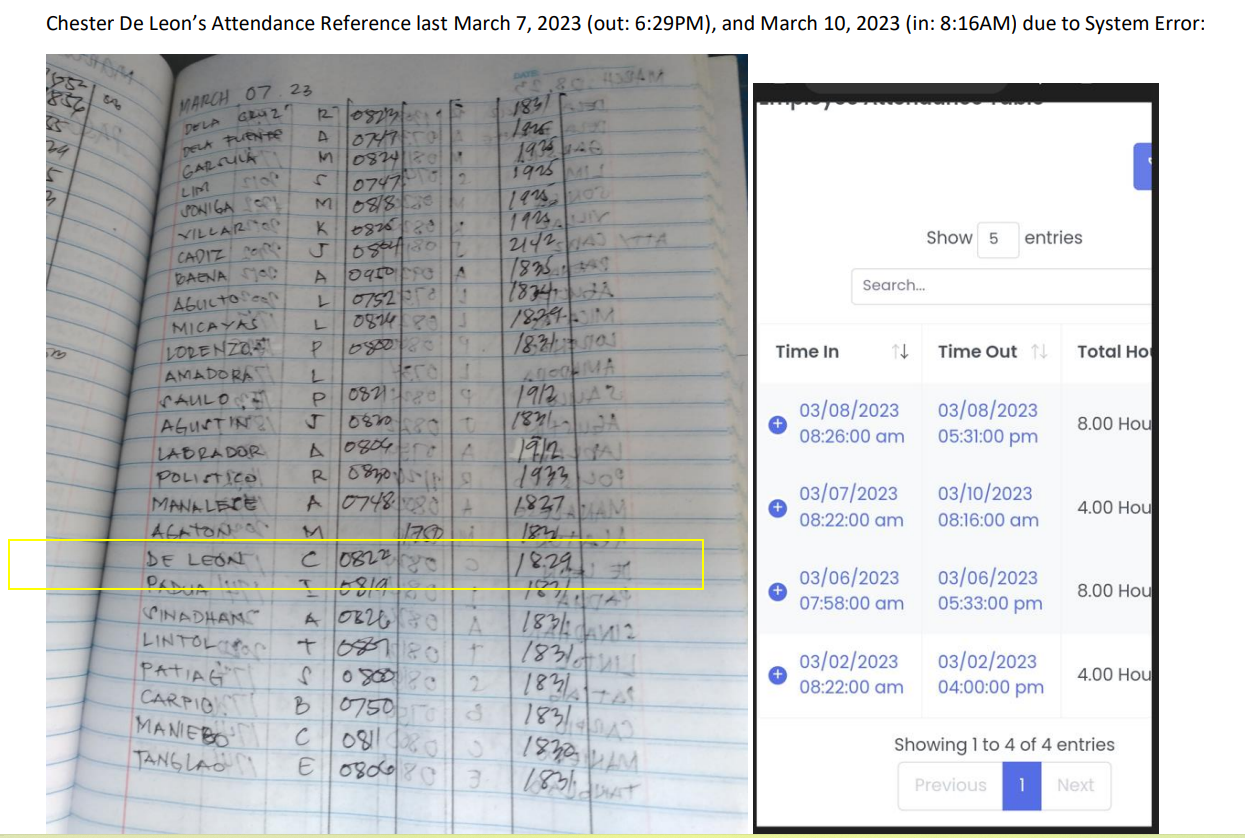 Chester De Leon’s Attendance Reference last March 7, 2023 (out: 6:29PM), and March 10, 2023 (in: 8:16AM) due to System Error:
MARCH 07. 23
DELA CRUZ R 0823 1831
DELA FUENTE A 0747 1925
M 0824 1925
LIM S 0747 1925
SONIGA M 0818 1925
VILLAR K 0825 1925
CADIZ J 2142
BAENA A 1835
AGULTO L 0752 1834
MICAYAS L 0824 1829
LORENZO P 0800 1831
AMADORA L
SAULO P 0821 1912
AGUSTIN J 0820 1831
LABRADOR A 0804 1912
POLISTICO R 0830 1933
MANALESE A 0748 1827
AGATON M 1750 1831
DE LEON C 0822 1829
PADUA I 0819 1831
SINADHAN A 0826 1831
LINTOL T 1831
PATIAG S 0800 1831
CARPIO B 0750 1831
MANIEBO C 0811 1830
TANGLAO E 0806 1831
Employee Attendance Table
Show 5 entries
Search...
Time In Time Out Total Hou
03/08/2023 03/08/2023
08:26:00 am 05:31:00 pm 8.00 Hou
03/07/2023 03/10/2023
08:22:00 am 08:16:00 am 4.00 Hou
03/06/2023 03/06/2023
07:58:00 am 05:33:00 pm 8.00 Hou
03/02/2023 03/02/2023
08:22:00 am 04:00:00 pm 4.00 Hou
Showing 1 to 4 of 4 entries
Previous 1 Next